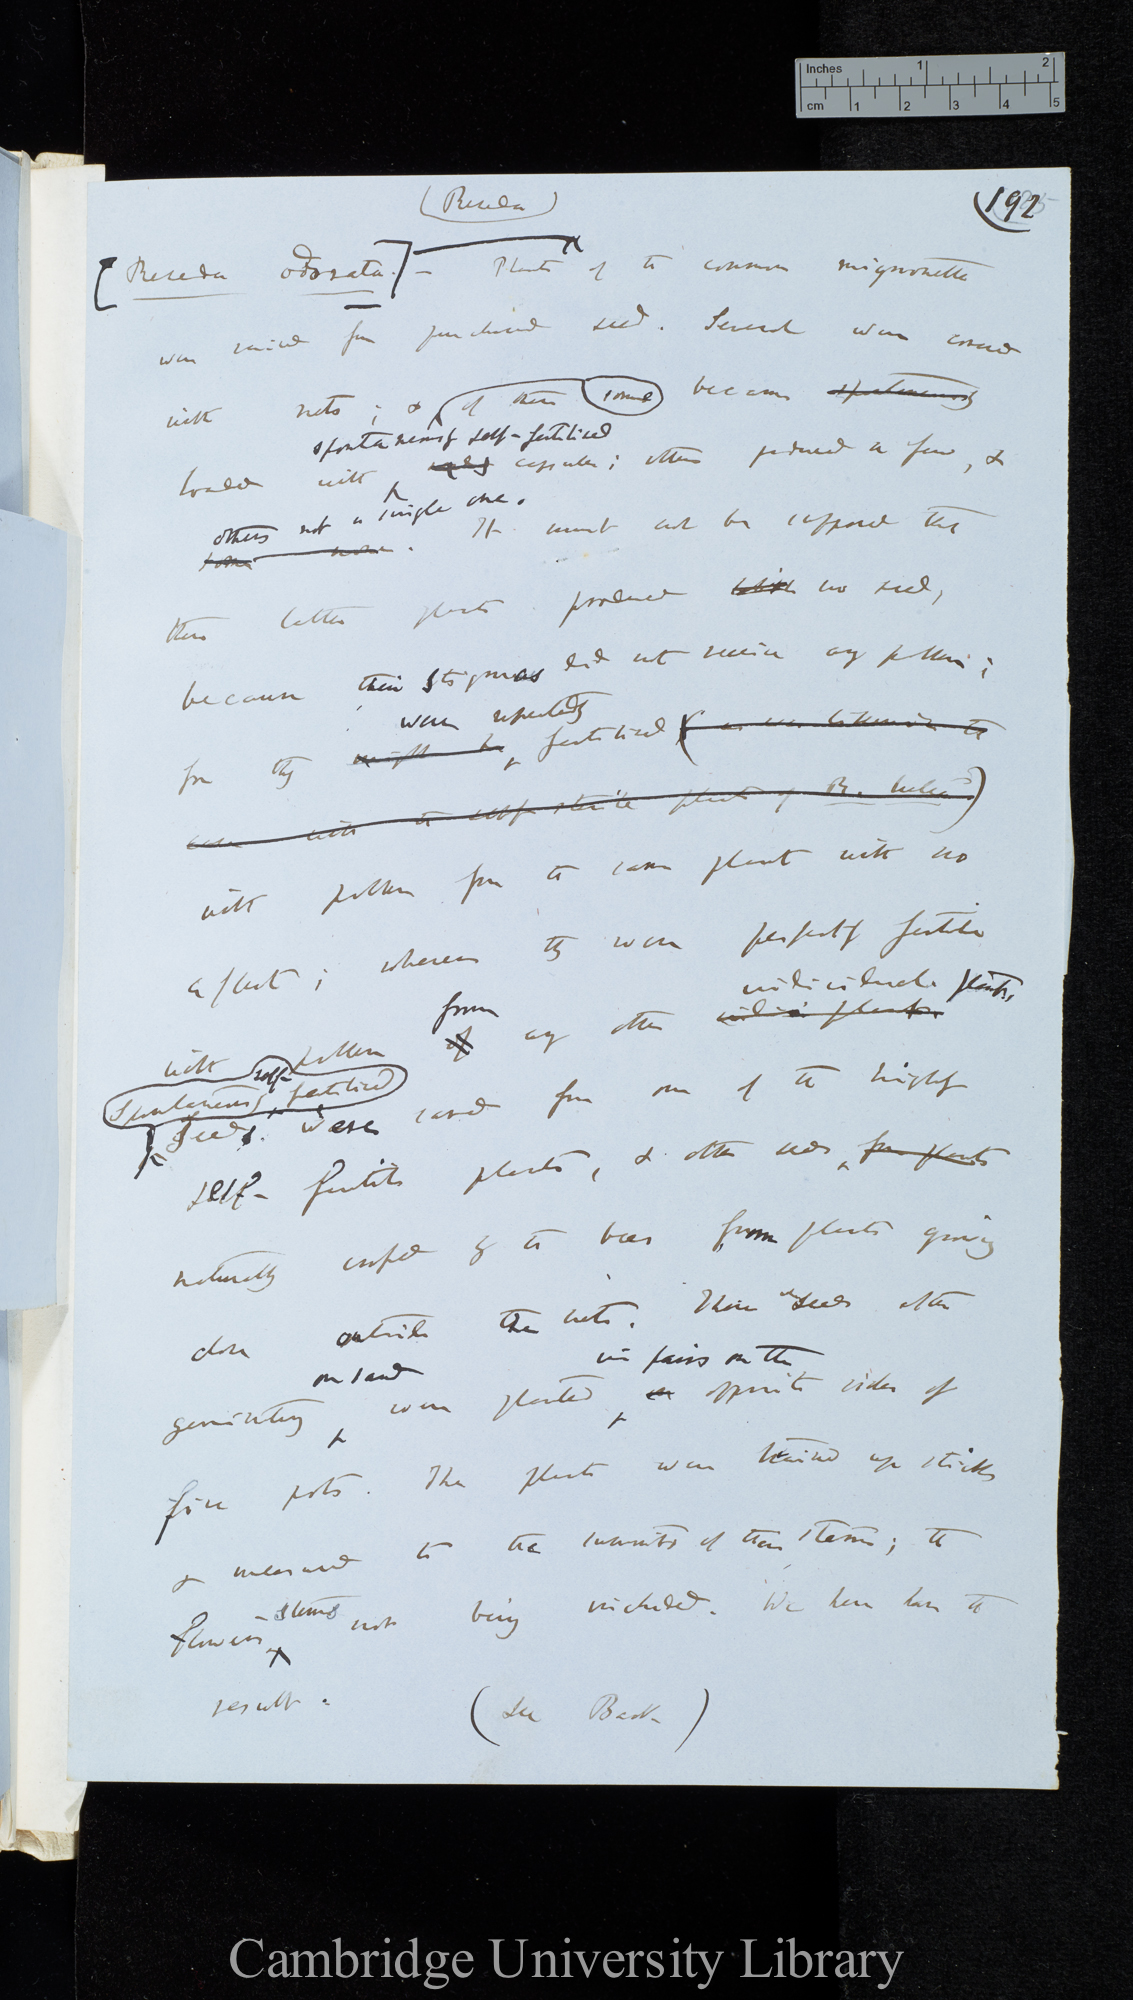 Inches 1 2
cm 1 2 3 4 5
(Reseda)
192
[Reseda odorata.] — Plants of the common mignonette
were raised from purchased seed. Several were covered
with nets; & of these some became spontaneously
spontaneously self-fertilised
loaded with capsules; others produced a few, &
others not a single one.
some none. It must not be supposed that
these latter plants produced no seed,
because their stigmas did not receive any pollen;
were repeatedly
for they might be fertilised (as was likewise the
case with the self-sterile plants of R. lutea)
with pollen from the same plant with no
effect; whereas they were perfectly fertile
individual plants,
from
with pollen of any other
self-
Spontaneously fertilised
Seeds were saved from one of the highly
self-fertile plants, & other seeds from plants
naturally crossed by the bees from plants growing
close outside the nets. These seeds after
on sand in pairs on the
germinating were planted on opposite sides of
five pots. The plants were trained up sticks
& measured to the summits of their stems; the
stems
flowering not being included. We here have the
result.
(See Back)
Cambridge University Library